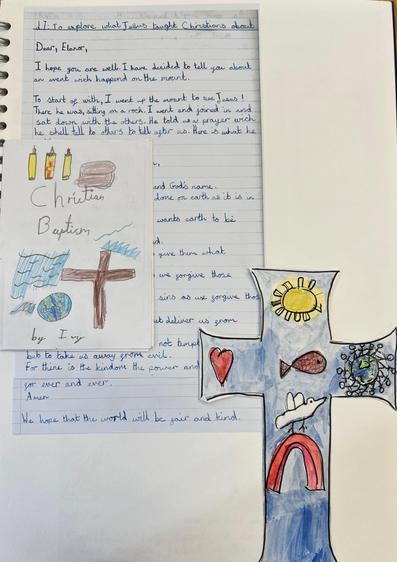 LI: To explore what Jesus taught Christians about
Dear, Elanor,
I hope you are well. I have decided to tell you about
an event wich happend on the mount.
To start of with, I went up the mount to see Jesus!
There he was, sitting on a rock. I went and joined in and
sat down with the others. He told us a prayer wich
he shall tell to others to tell after us. Here is what he
and God's name.
done on earth as it is in
wants earth to be
give them what
we forgive those
sins as we forgive those
but deliver us from
not tempt
but to take us away from evil.
For thine is the kindom the power and
for ever and ever.
Amen
We hope that the world will be fair and kind.
Christian
Baptism
by Ivy